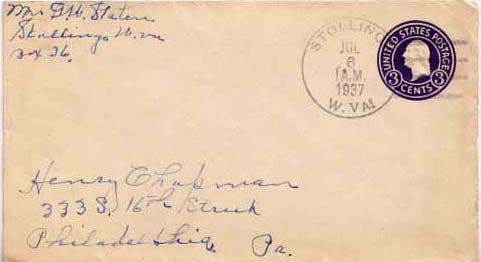 Mrs G.W. Staten
Stollings W.va
Box 36.
STOLLINGS
JUL
6
1 A.M.
1937
W. VA.
UNITED STATES POSTAGE
3 3
CENTS
Henry Chapman
333 S. 16th Street
Philadelphia, Pa.